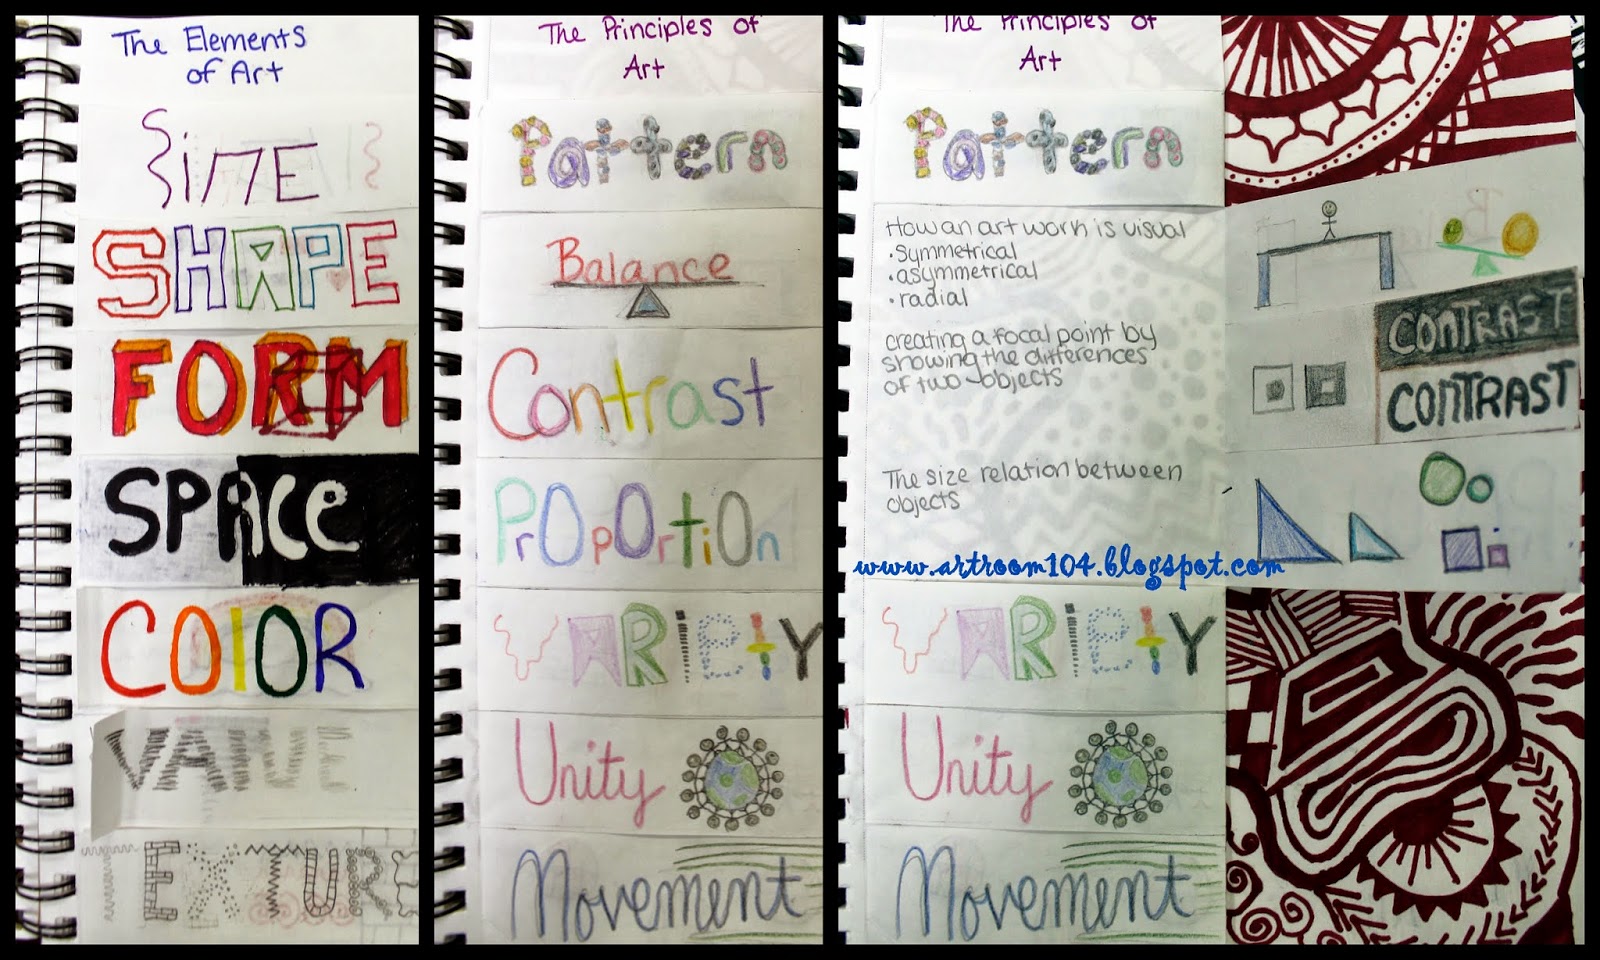 The Elements
of Art
Line
SHAPE
FORM
SPACE
COLOR
VALUE
TEXTURE
The Principles of
Art
Pattern
Balance
Contrast
PrOpOrtiOn
VARIEtY
Unity
Movement
The Principles of
Art
Pattern
How an art work is visual
• Symmetrical
• asymmetrical
• radial
creating a focal point by
showing the differences
of two objects
The size relation between
objects
CONTRAST
CONTRAST
www.artroom104.blogspot.com
VARIEtY
Unity
Movement